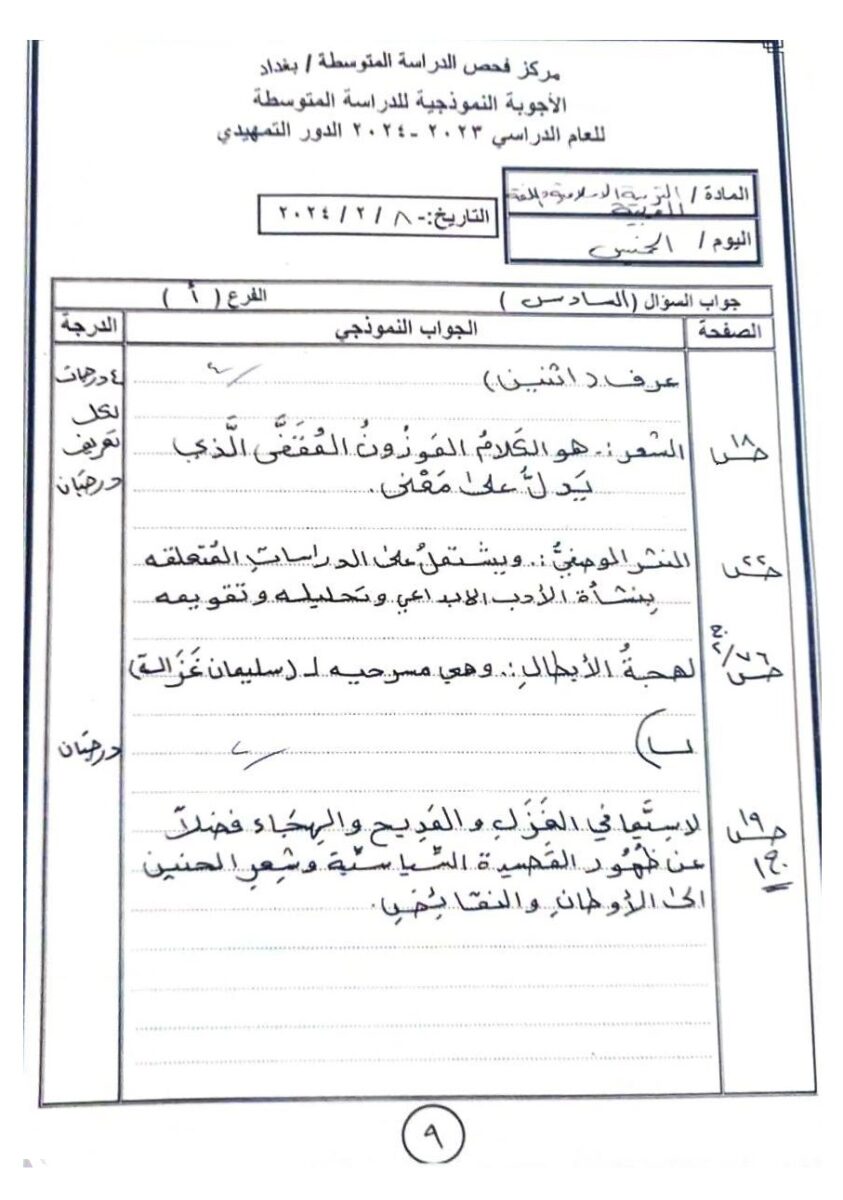 مركز فحص الدراسة المتوسطة / بغداد
الأجوبة النموذجية للدراسة المتوسطة
للعام الدراسي ٢٠٢٣ -٢٠٢٤ الدور التمهيدي
المادة / التربية الاسلامية واللغة العربية
التاريخ:- ٨ / ٢ / ٢٠٢٤
اليوم / الخميس
جواب السؤال (السادس) الفرع ( أ )
الصفحة الجواب النموذجي الدرجة
عرف (اثنين) ٤ ٤ درجات
لكل
ص١٨ الشعر:. هو الكَلامُ المَوزُونُ المُقَفَّى الَّذي تعريف
يَدلُّ على مَعْنى. درجتان
ص٢٢ النثر الوصفيُّ:. ويشتملُ على الدراساتِ المُتعلقه
بِنشأة الأدب الابداعي وتحليله وتقويمه
ص٧٦/ج٢ لهجةُ الأبطالِ:. وهي مسرحيه لـ (سليمان غَزَالة)
ب) ٢ درجتان
ص١٩ ج١ لاسِيَّما في الغَزَلِ والمَديحِ والهِجَاء فضلاً
عن ظُهُور القَصيدة السِّياسيَّة وشِعرِ الحنين
الى الأوطانِ والنقائِضِ.
٩